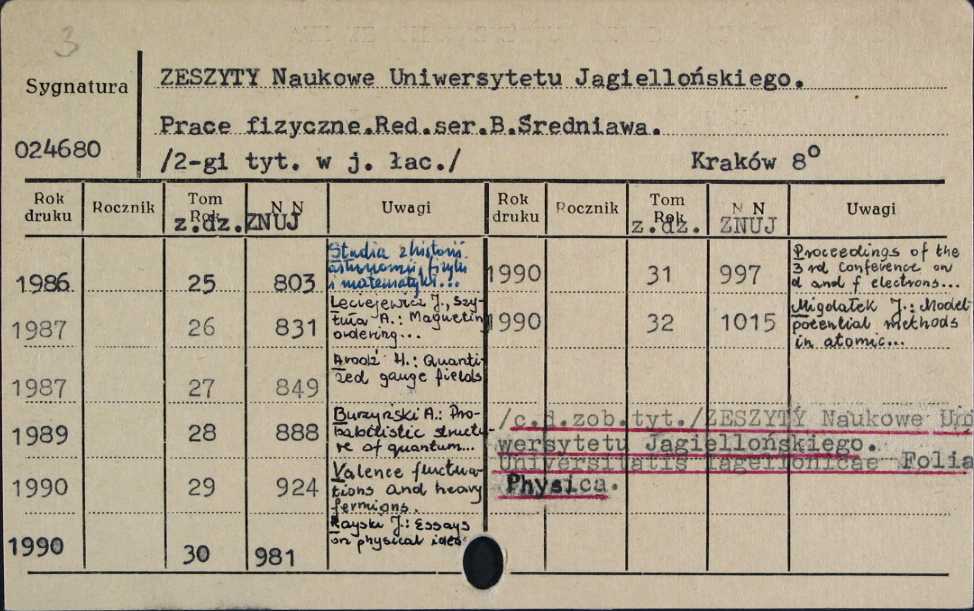 3
ZESZYTY Naukowe Uniwersytetu Jagiellońskiego.
Sygnatura
Prace fizyczne.Red.ser.B.Średniawa.
024680
/2-gi tyt. w j. łac./ Kraków 8°
Rok druku Rocznik Tom Rok z.dz. N N ZNUJ Uwagi Rok druku Rocznik Tom Rok z.dz. N N ZNUJ Uwagi
1986 25 803 Studia z historii astronomii, fizyki i matematyki...
1987 26 831 Leciejewicz J., Szytuła A.: Magnetic ordering...
1987 27 849 Arodź H.: Quantized gauge fields
1989 28 888 Burzyński A.: Probabilistic structure of quantum...
1990 29 924 Valence fluctuations and heavy fermions.
1990 30 981 Rayski J.: Essays on physical ideas
1990 31 997 Proceedings of the 3rd conference on d and f electrons...
1990 32 1015 Migdałek J.: Model potential methods in atomic...
/c.d.zob.tyt./ZESZYTY Naukowe Uni
wersytetu Jagiellońskiego.
Universitatis Iagellonicae Folia
Physica.